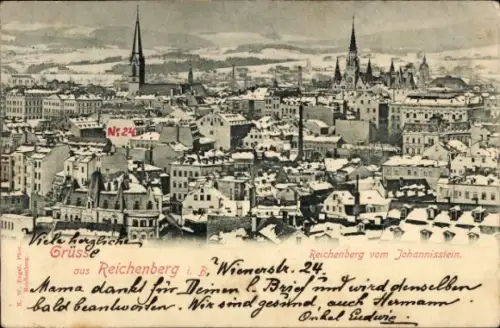 Nº 24
Viele herzliche
Grüsse
aus Reichenberg i. B.
Reichenberg vom Johannisstein.
Wienerstr. 24.
Mama dankt für Deinen l. Brief und wird denselben
bald beantworten. Wir sind gesund, auch Hermann
Onkel Ludwig
Reichenberg.